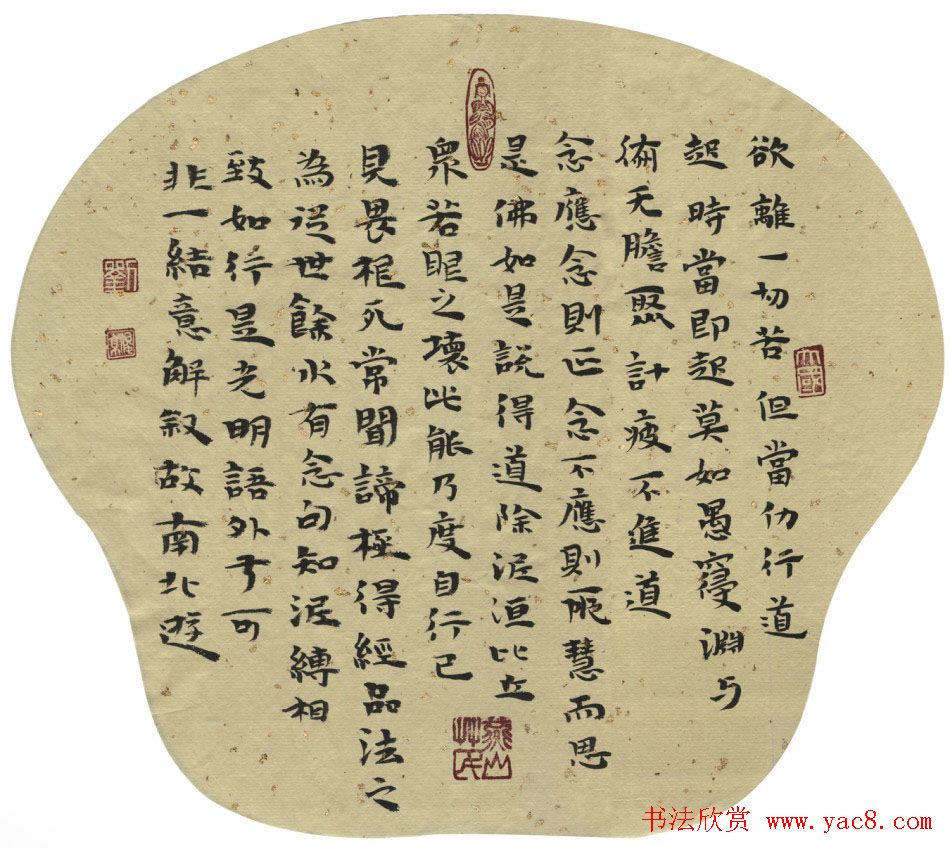 欲離一切苦但當仂行道
起時當即起莫如愚寑淵与
無瞻聚計疲不進道
念應念則正念不應則慧而思
是佛如是說得道除泥洹比丘
衆若眼之壞比能乃度自行已
見畏死常聞諦極得經品法之
為世餘水有念句知泥縛相
致如行是光明語外可
非一結意解叙故南北遊
燕山
书法欣赏 www.yac8.com